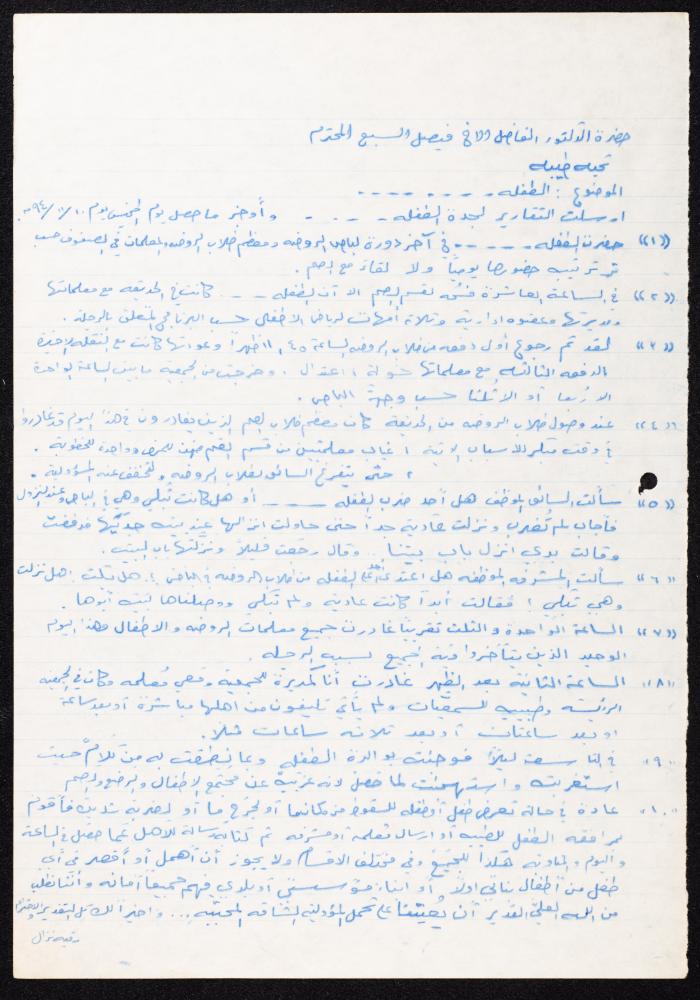 حضرة الدكتور الفاضل الاخ فيصل السبع المحترم
تحية طيبه
الموضوع : الطفله - - - - - -
ارسلت التقارير لجدة الطفله - - - - وأوخر ما حصل يوم الخميس يوم
((١)) حضرت الطفله - - - - في آخر دورة لباص الروضه ومعظم طلاب الروضه والمعلمات في الصفوف حسب
ترتيبه حضورها يومياً ولا لقاء مع الصم .
((٢)) في الساعة العاشرة لقسم الصم الا أن الطفله - - كانت في الحديقة مع معلماتها
ومديرتها وعضوه ادارية وثلاثة أمهات لرياض الاطفال حسب البرنامج المتعلق بالرحلة .
((٣)) لقد تم رجوع أول دفعه من طلاب الروضه الساعة ١١,٤٥ ظهراً وعودتها كانت مع النقله الاخيرة
الدفعه الثالثه مع معلماتها خولة . وخرجت من الجمعيه ما بين الساعة الواحدة
الا ربعا أو الا ثلثا حسب وجهة الباص .
((٤)) عند وصول طلاب الروضه من الحديقة كان معظم طلاب الصم الذين يغادرون في هذا اليوم قد غادروا
في وقت مبكر للاسباب الاتية ١ غياب معلمتين من قسم الصم للمرض وواحدة للخطوبة .
٢ حتى يتفرغ السائق لطلاب الروضه وتخفف عنه المسؤولية .
((٥)) سألت السائق الموظف هل أحد ضرب الطفله - - - أو هل كانت تبكي وهي في الباص وعند النزول
فأجاب لم تُضرب ونزلت عادية جداً حتى حاولت انزالها عند بيت جدتها فرفضت
وقالت بدي انزل باب بيتنا .. وقال رجعت قليلاً ونزلتها باب البيت .
((٦)) سألت المشرفه الموظفه هل اعتدى أحد على الطفله من طلاب الروضه في الباص ؟ هل بكت ؟ هل نزلت
وهي تبكي ؟ فقالت أبداً كانت عادية ولم تبكي ووصلناها لبيت أبوها .
((٧)) الساعة الواحدة والثلث تقريباً غادرن جميع معلمات الروضه والاطفال وهذا اليوم
الوحيد الذين يتأخروا فيه الجميع بسبب الرحله .
((٨)) الساعة الثانية بعد الظهر غادرت أنا كمديرة للجمعية ومعي معلمه وكان في الجمعيه
الرئيسه وطبيبه للسمعيات ولم يأتي تليفون من اهلها مباشرة أو بعد ساعة
او بعد ساعتان أو بعد ثلاثه ساعات مثلاً .
٩ . فوجئت بوالدة الطفله وبما نطقت به من كلام حيث
استغربته واستهجنت لما حصل لانه غريب عن مجتمع الاطفال والرضع والصم
١٠ . عادة في حالة تعرض طفل أو طفله للسقوط من مكانهما أو لجرح ما أو لضربه شديدة فأقوم
بمرافقه الطفل للطبيب أو ارسال معلمة أو مشرفه ثم كتابه رساله للاهل عما حصل في الساعة
واليوم والحادثه هكذا للجميع وفي مختلف الاقسام ولا يجوز أن أهمل أو أقصر في أي
طفل من أطفال بناتي أولاً أو ابناء مؤسستي أو بلدي فهم جميعاً أمانه وأننا نطلب
من الله العليّ القدير أن يُعيننا على تحمل المسؤولية الشاقه المحببه ... واخيراً لك كل التقدير والاحترام
رقيه نزال